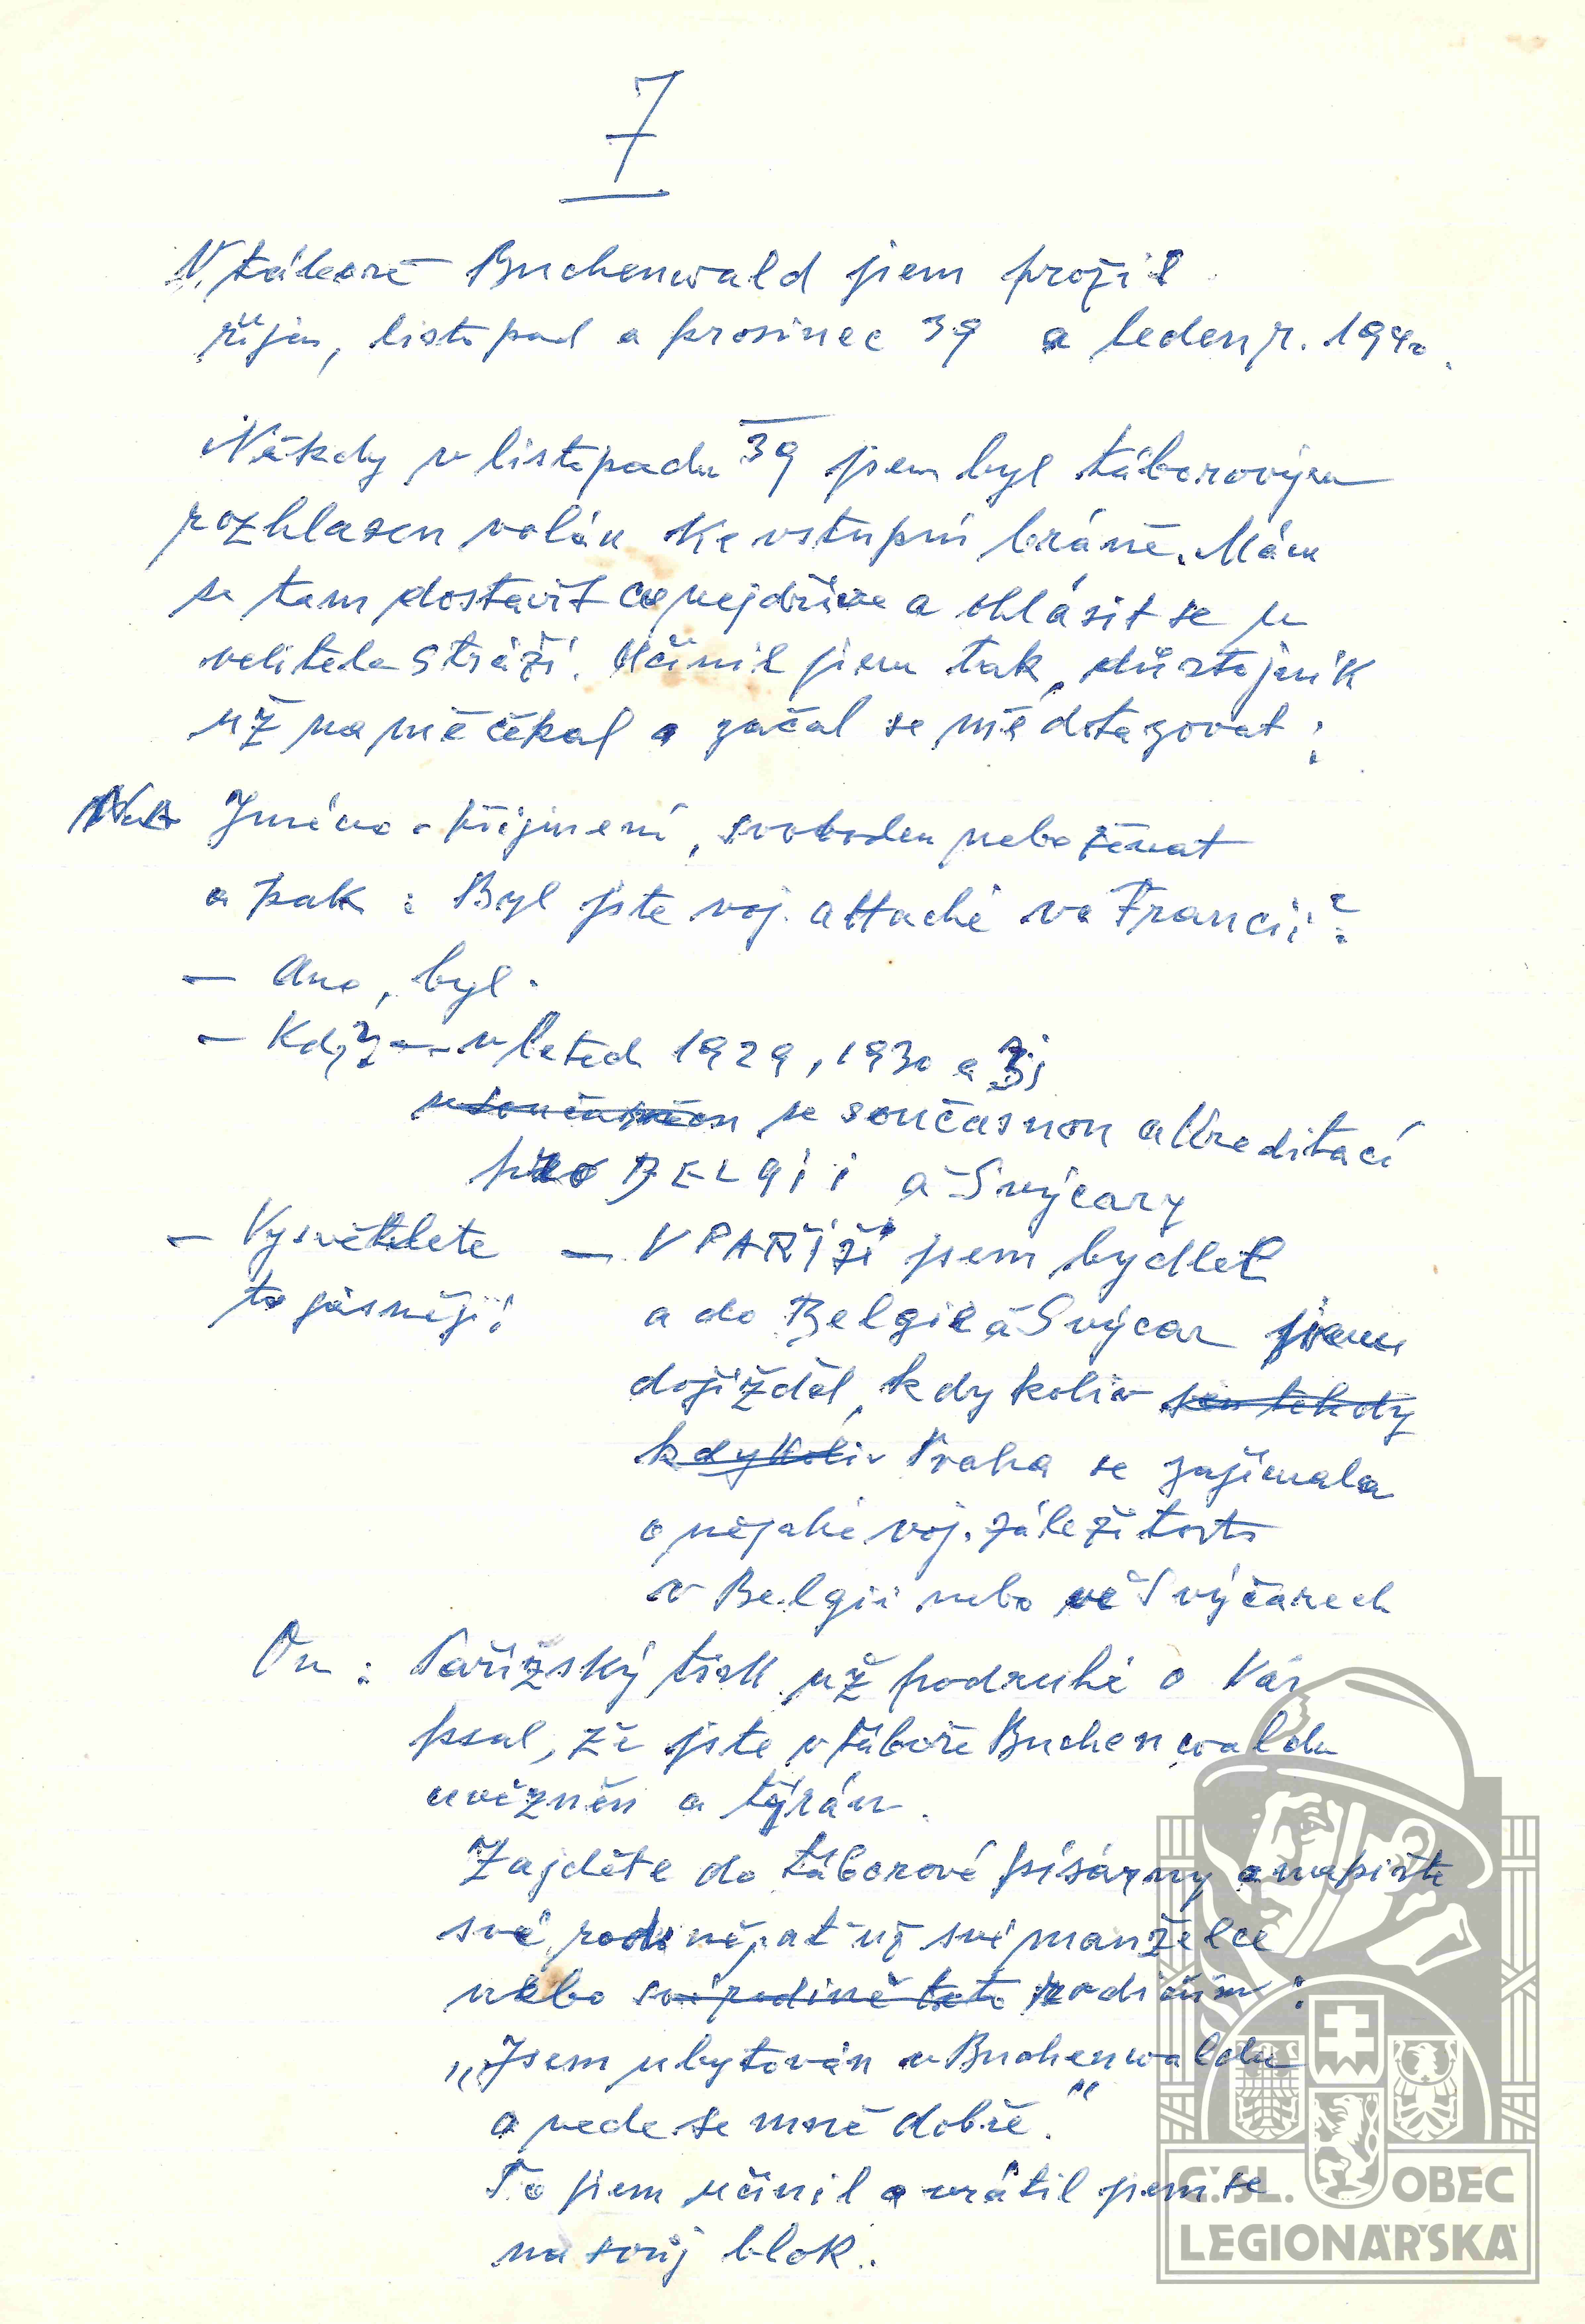 7
V táboře Buchenwald jsem prožil
říjen, listopad a prosinec 39 a leden r. 1940.
Někdy v listopadu 39 jsem byl táborovým
rozhlasem volán ke vstupní bráně. Mám
se tam dostavit co nejdříve a ohlásit se u
velitele stráží. Učinil jsem tak, důstojník
už na mě čekal a začal se mě dotazovat:
Jméno a příjmení, svoboden nebo ženat
a pak: Byl jste voj. attaché ve Francii?
– Ano, byl.
– Kdy? – v letech 1929, 1930 a 31
se současnou akreditací
pro BELGII a Švýcary
– Vysvětlete – V PAŘÍŽI jsem bydlel
to jasněji! a do Belgie a Švýcar jsem
dojížděl, kdykoliv sem tehdy
kdykoliv Praha se zajímala
o nějaké voj. záležitosti
v Belgii nebo ve Švýcarech
On: Pařížský tisk už podruhé o Vás
psal, že jste v táboře Buchenwaldu
uvězněn a týrán.
Zajděte do táborové písárny a napište
své rodině, ať už své manželce
nebo své rodině toto rodičům:
„Jsem ubytován v Buchenwaldu
a vede se mně dobře."
To jsem učinil a vrátil jsem se
na svůj blok.
Č.SL. OBEC
LEGIONÁŘSKÁ